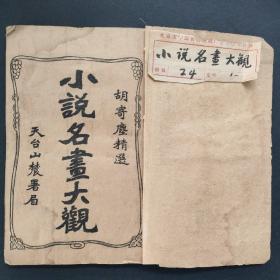 胡寄塵精選
小說名畫大觀
天台山農署眉
小说名畫大觀
24
1-